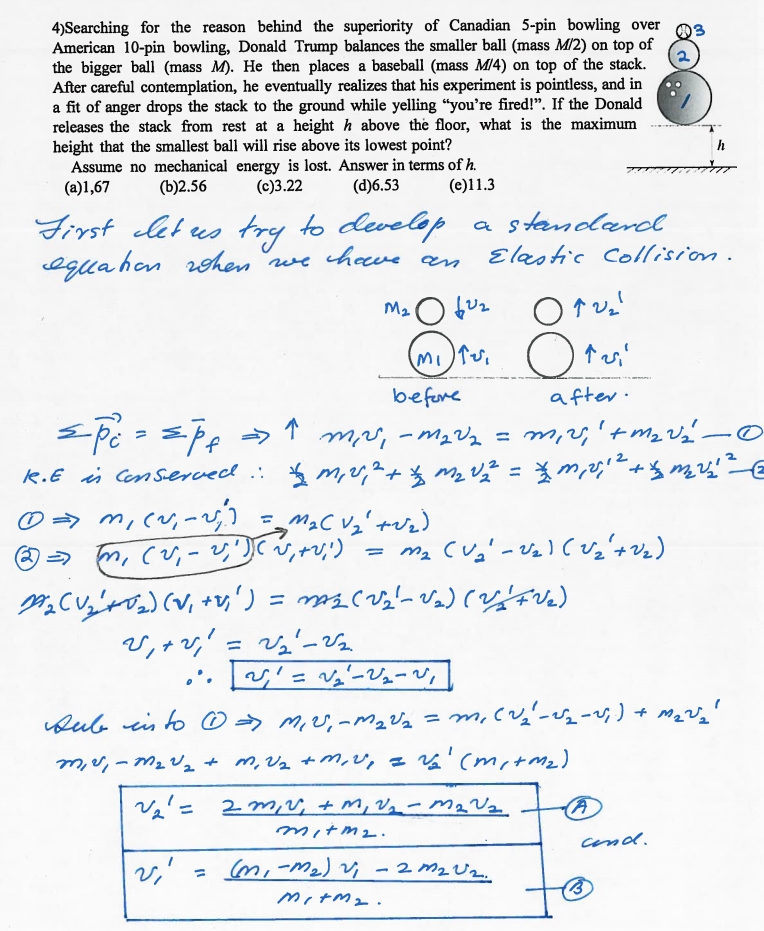 4)Searching for the reason behind the superiority of Canadian 5-pin bowling over
American 10-pin bowling, Donald Trump balances the smaller ball (mass M/2) on top of
the bigger ball (mass M). He then places a baseball (mass M/4) on top of the stack.
After careful contemplation, he eventually realizes that his experiment is pointless, and in
a fit of anger drops the stack to the ground while yelling “you're fired!”. If the Donald
releases the stack from rest at a height h above the floor, what is the maximum
height that the smallest ball will rise above its lowest point?
Assume no mechanical energy is lost. Answer in terms of h.
(a)1,67 (b)2.56 (c)3.22 (d)6.53 (e)11.3
3
2
1
h
First let us try to develop a standard
equation when we have an Elastic Collision.
M₂ ↓v₂ ↑v₂'
M₁ ↑v₁ ↑v₁'
before after.
Σp⃗ᵢ = Σp̄f ⇒ ↑ m₁v₁ - m₂v₂ = m₁v₁' + m₂v₂' — ①
K.E is conserved ∴ ½ m₁v₁² + ½ m₂v₂² = ½ m₁v₁'² + ½ m₂v₂'² — ②
① ⇒ m₁(v₁-v₁') = m₂(v₂'+v₂)
② ⇒ m₁(v₁-v₁')(v₁+v₁') = m₂(v₂'-v₂)(v₂'+v₂)
m₂(v₂'+v₂)(v₁+v₁') = m₂(v₂'-v₂)(v₂'+v₂)
v₁+v₁' = v₂'-v₂
∴ v₁' = v₂'-v₂-v₁
Sub into ① ⇒ m₁v₁-m₂v₂ = m₁(v₂'-v₂-v₁) + m₂v₂'
m₁v₁-m₂v₂ + m₁v₂ + m₁v₁ = v₂'(m₁+m₂)
v₂' = 2m₁v₁ + m₁v₂ - m₂v₂ — Ⓐ
m₁+m₂.
and.
v₁' = (m₁-m₂)v₁ - 2m₂v₂. — Ⓑ
m₁+m₂.